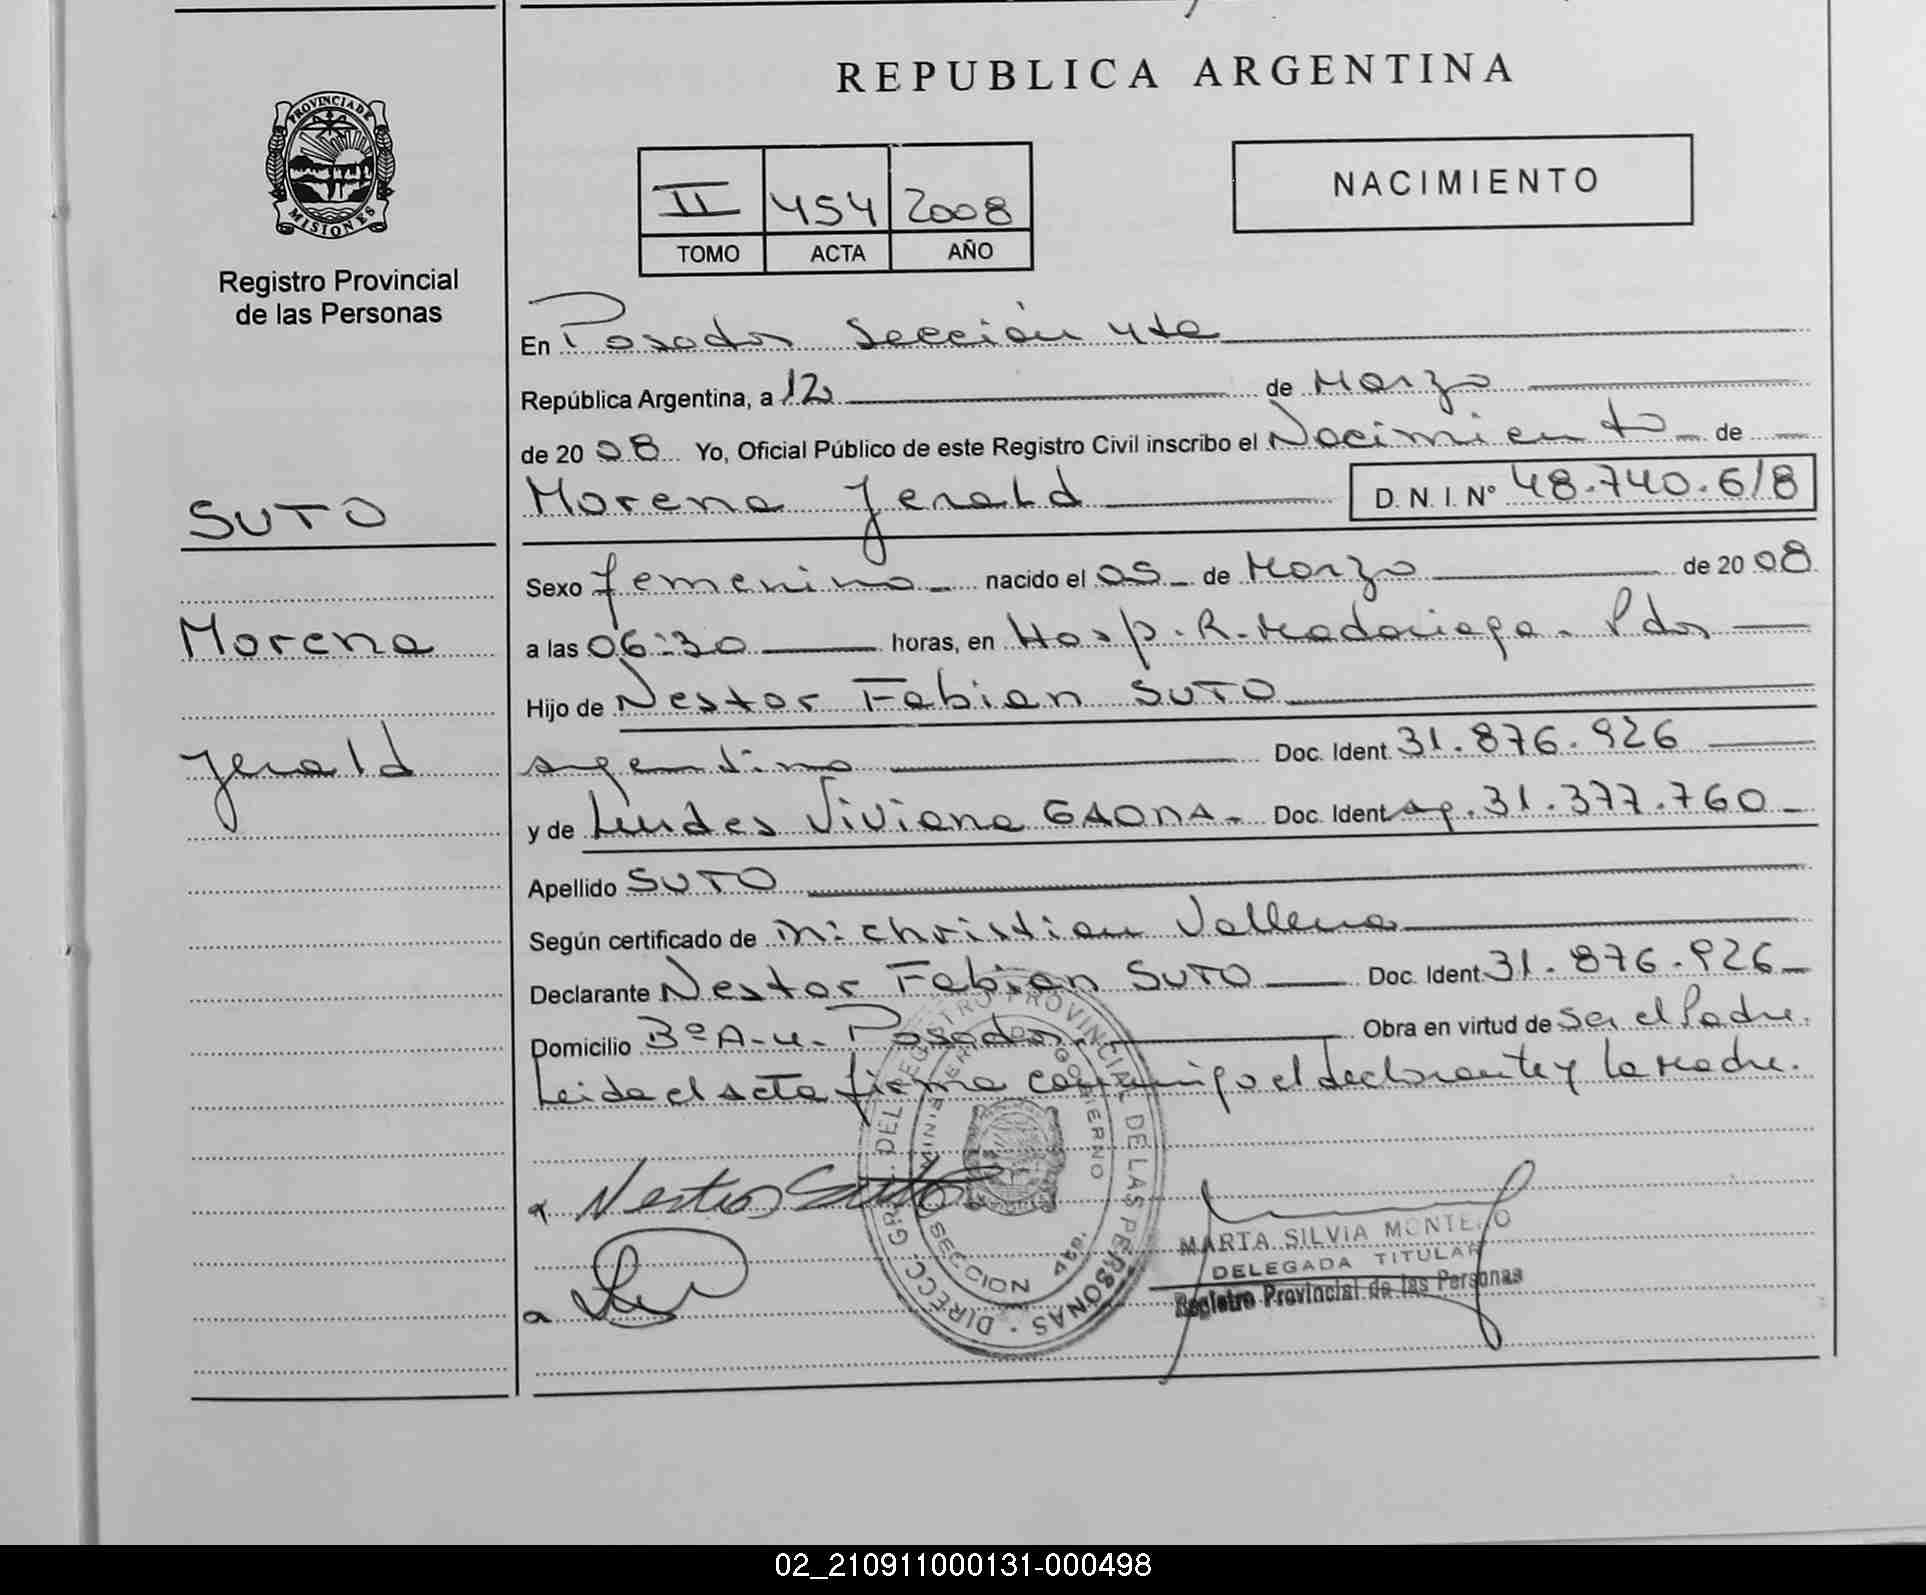 REPUBLICA ARGENTINA
PROVINCIA DE MISIONES
Registro Provincial
de las Personas
NACIMIENTO
II 454 2008
TOMO ACTA AÑO
En Posadas Sección 4ta
República Argentina, a 12 de Marzo
de 2008 Yo, Oficial Público de este Registro Civil inscribo el Nacimiento de
Morena Jerald D.N.I. N° 48.740.618
SUTO
Morena
Jerald
Sexo femenino nacido el 05 de Marzo de 2008
a las 06:30 horas, en Hosp. R. Madariaga. Pdas
Hijo de Nestor Fabian SUTO
argentino Doc. Ident. 31.876.926
y de Lurdes Viviana GAONA. Doc. Ident. ag. 31.377.760
Apellido SUTO
Según certificado de christian Vallena
Declarante Nestor Fabian SUTO Doc. Ident. 31.876.926
Domicilio Bº A-4- Posadas Obra en virtud de ser el Padre.
Leida el acta firma conmigo el declarante y la Madre.
Nestor Suto
DIRECC. GRAL. DEL REGISTRO PROVINCIAL DE LAS PERSONAS
MINISTERIO DE GOBIERNO
SECCION 4ta.
MARTA SILVIA MONTEJO
DELEGADA TITULAR
Registro Provincial de las Personas
02_210911000131-000498